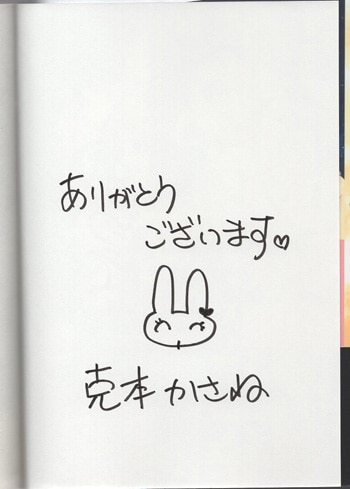 ありがとう
ございます♡
克本かさね